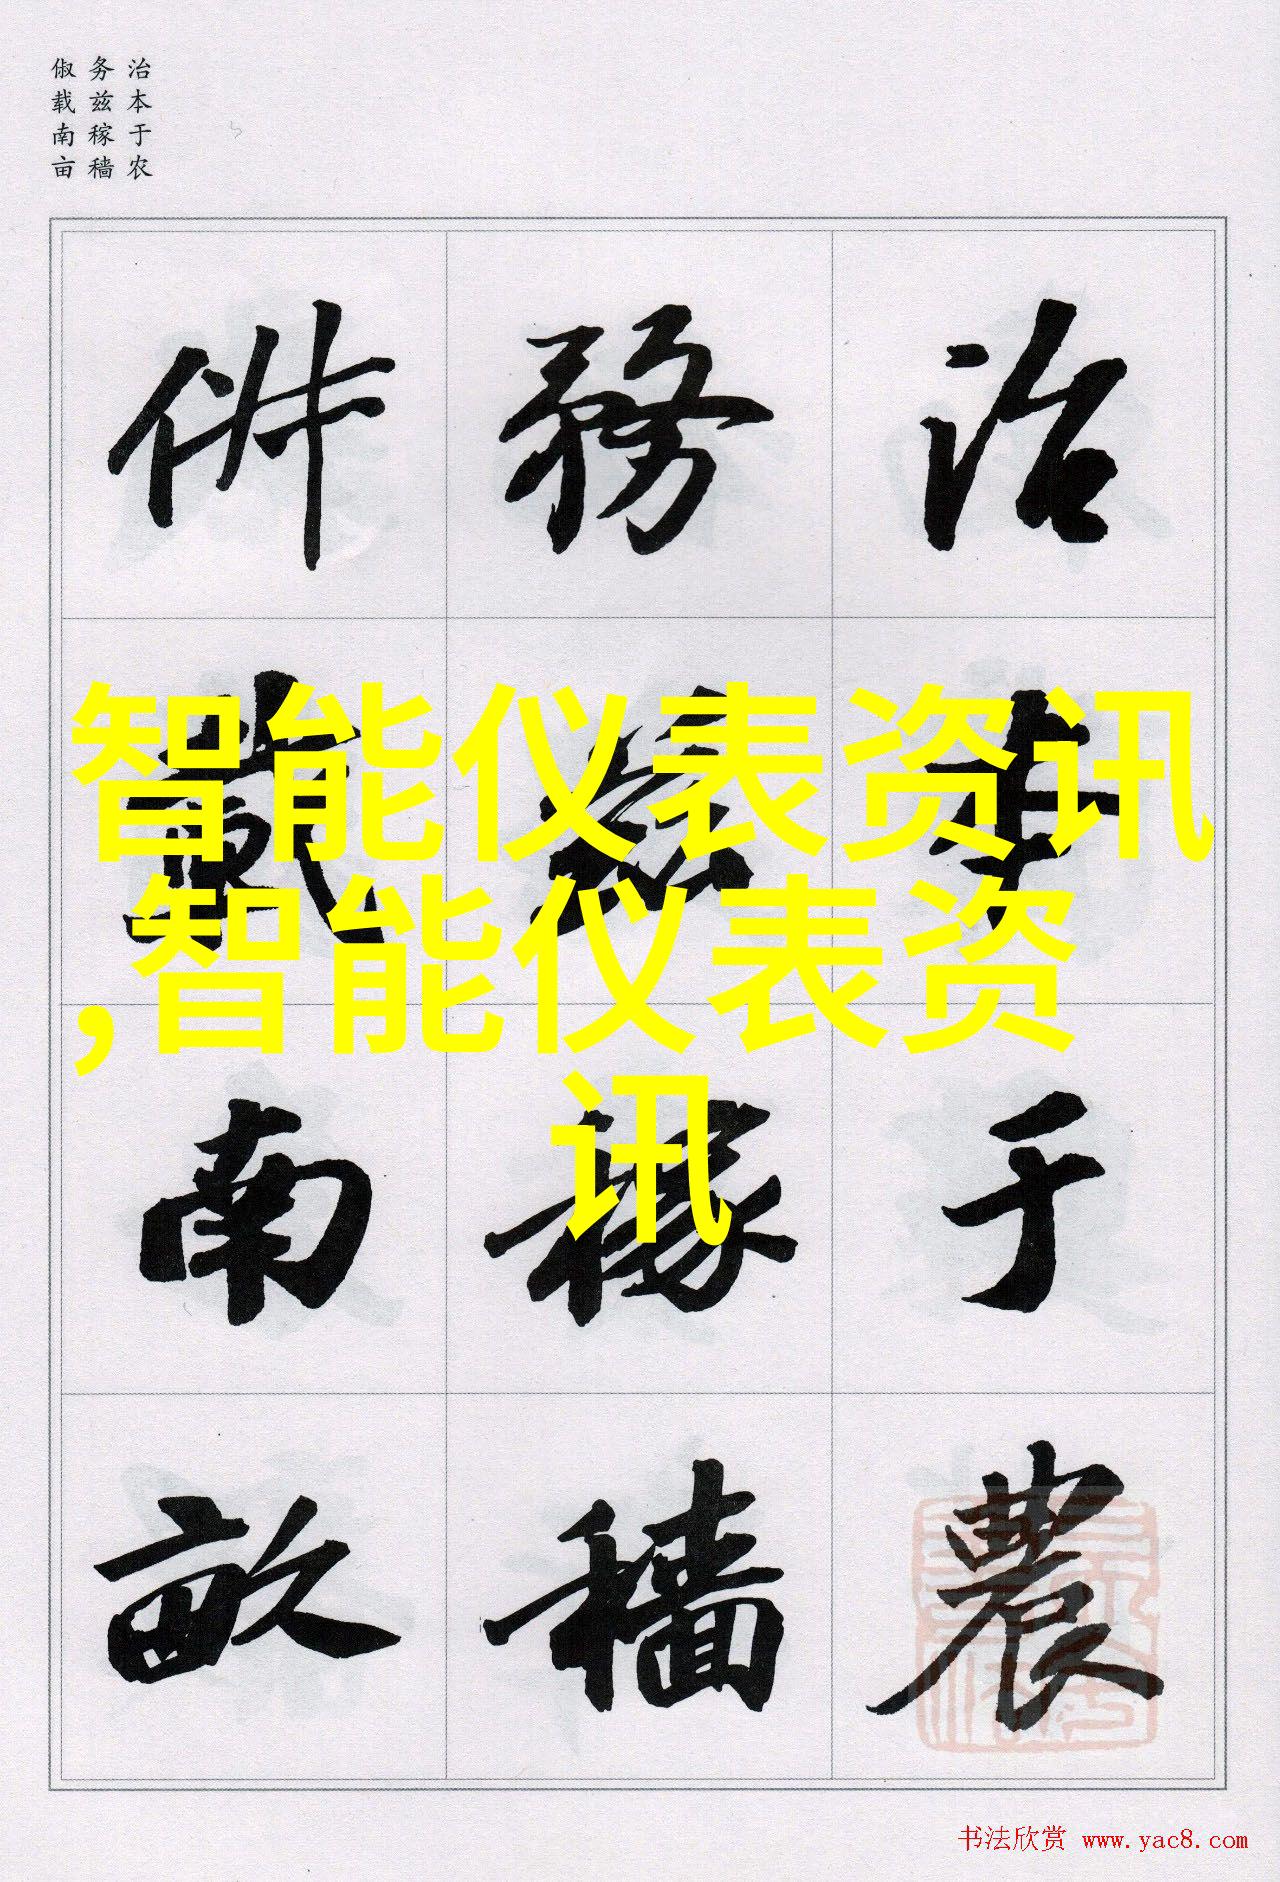 治本于农
务兹稼穑
俶载南亩
治本于農
務兹稼穡
俶載南畝
智能仪表资讯
,智能仪表资
讯
书法欣赏 www.yac8.com